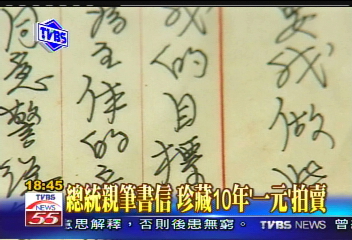 TVBS
我做
我的目標
主体的
總統親筆書信 珍藏10年"一元"拍賣
18:45
TVBS
NEWS
55
意思解釋，否則後患無窮。 TVBS NEWS 曾